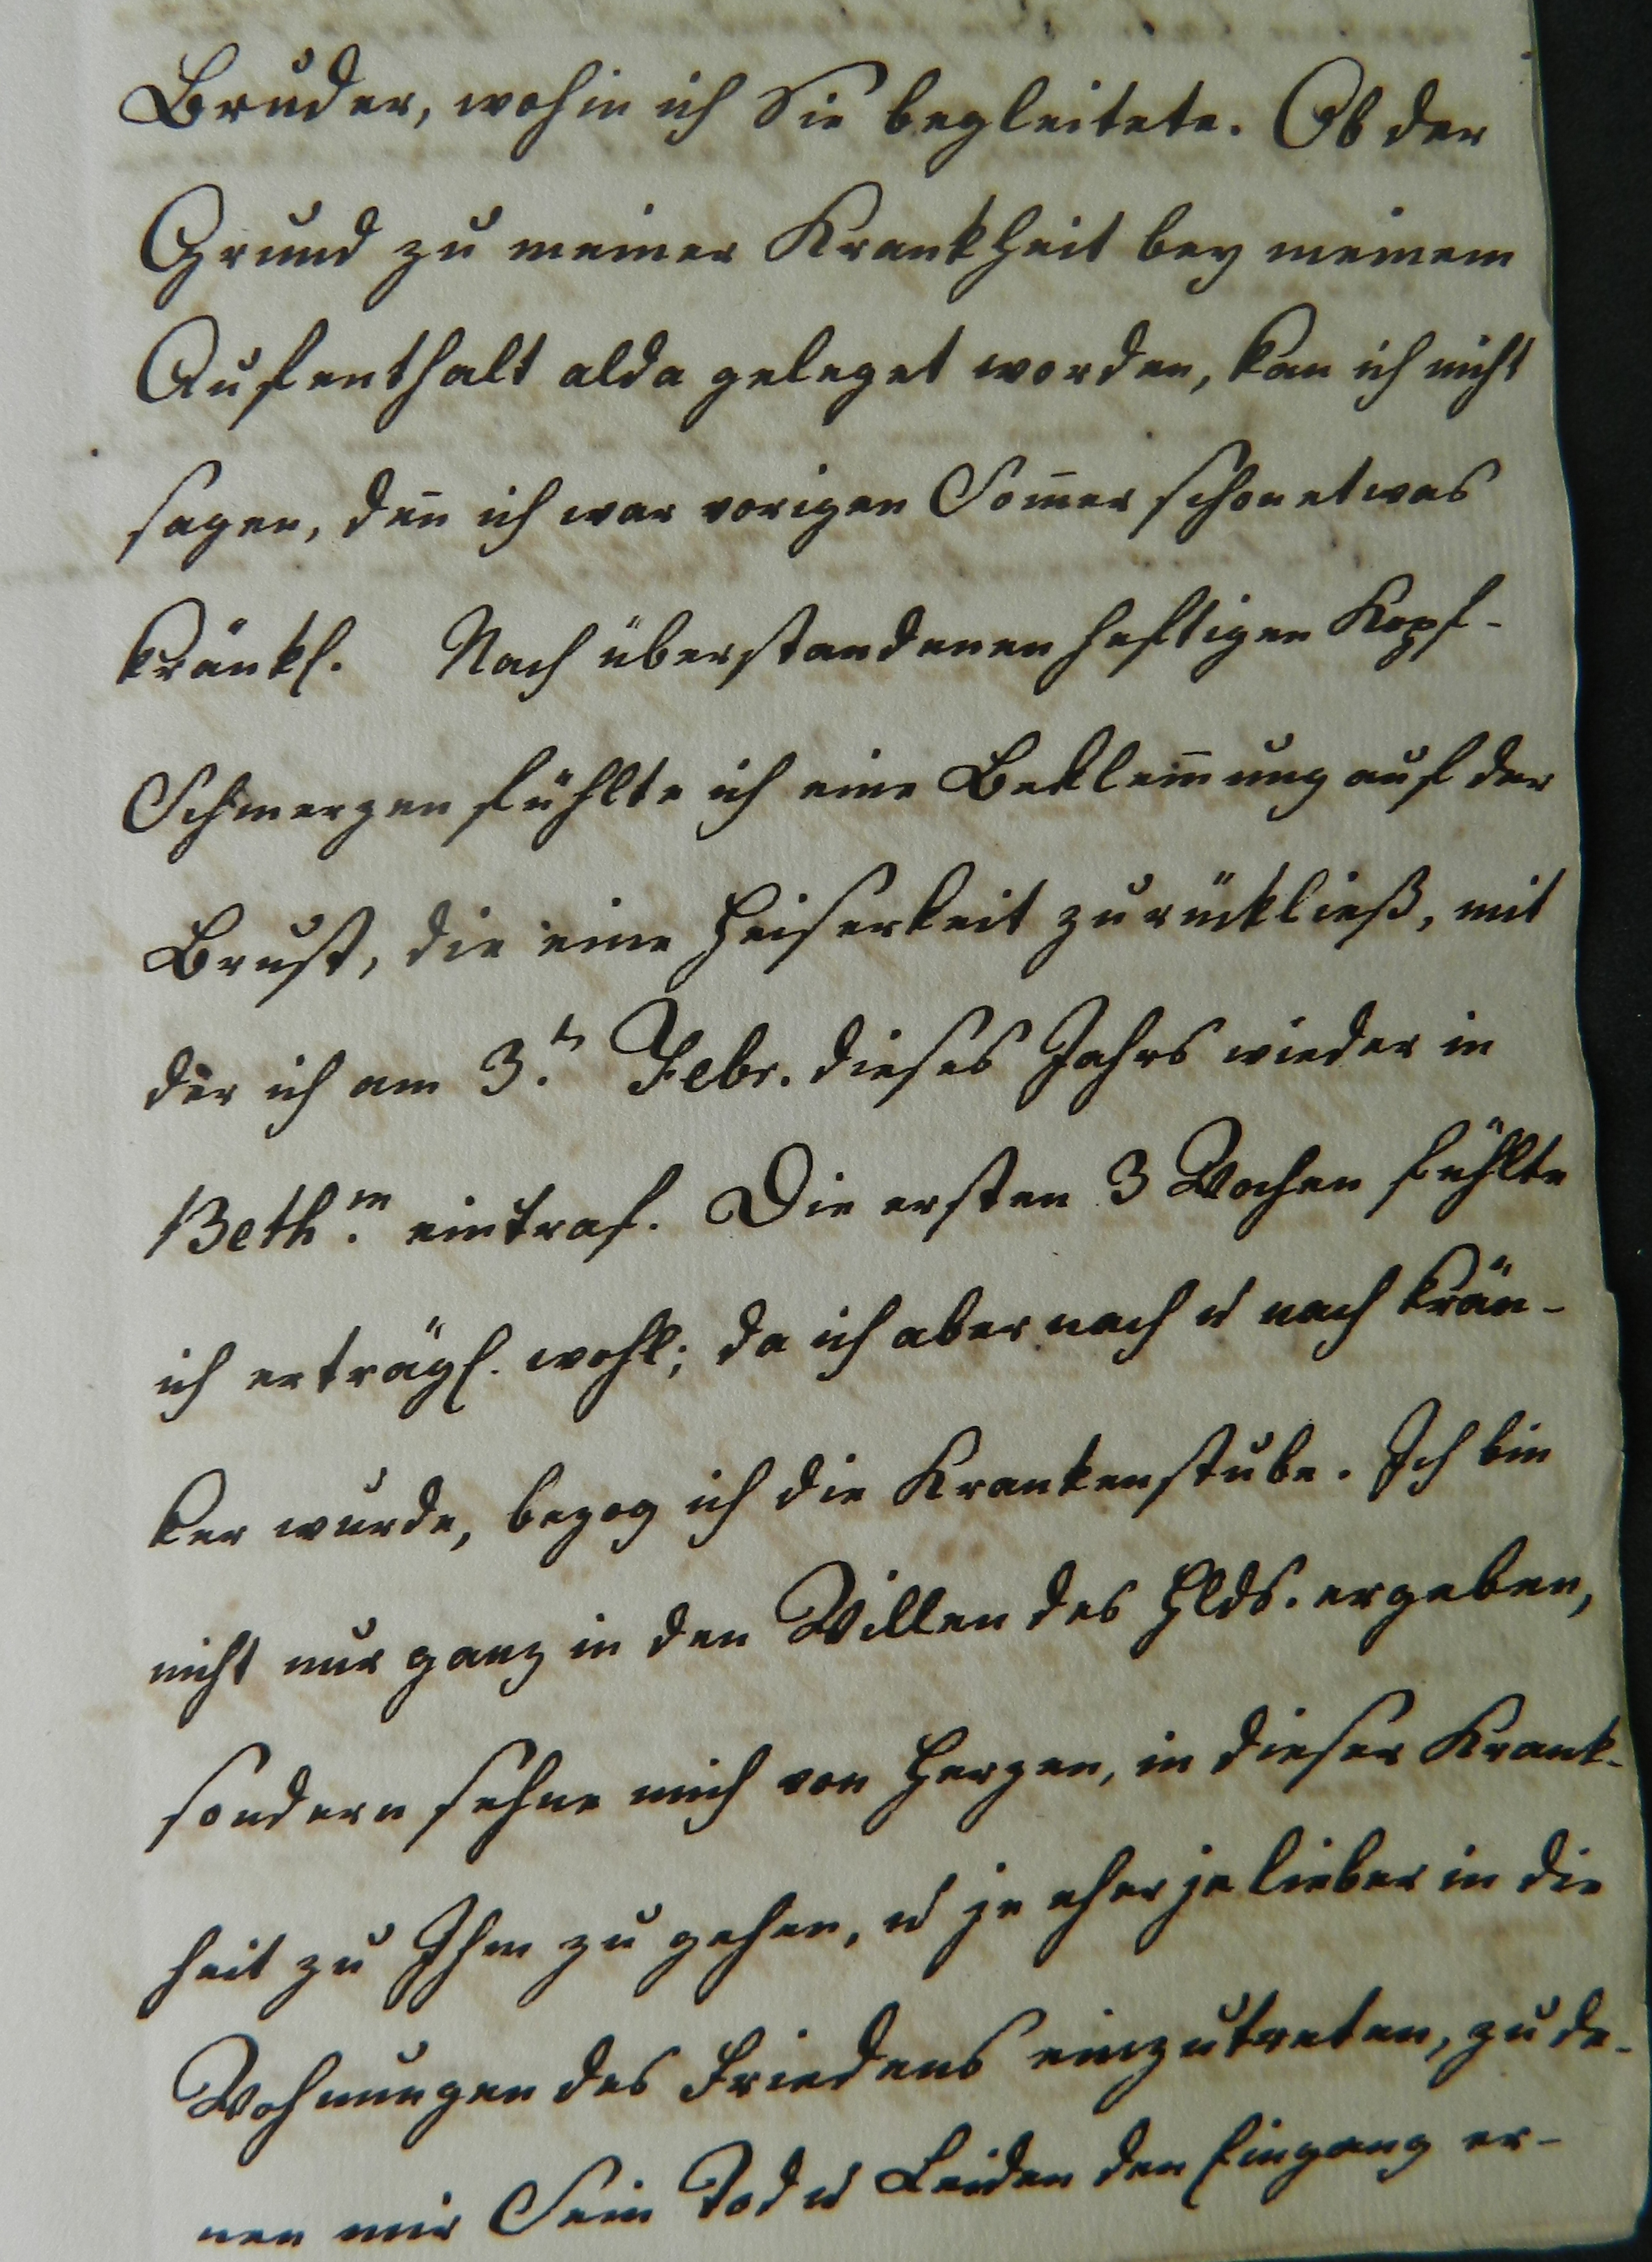 Bruder, wohin ich Sie begleitete. Ob der
Grund zu meiner Krankheit bey meinem
Aufenthalt alda geleget worden, kan ich nicht
sagen, den̄ ich war vorigen Som̄er schon etwas
kränkl. Nach überstandenen heftigen Kopf-
Schmerzen fühlte ich eine Beklem̄ung auf der
Brust, die eine Heiserkeit zurückließ, mit
der ich am 3.tn Febr. dieses Jahrs wieder in
Beth.m eintraf. Die ersten 3 Wochen fühlte
ich erträgl. wohl; da ich aber nach u nach krän-
ker wurde, bezog ich die Krankenstube. Ich bin
nicht nur ganz in den Willen des Hlds. ergeben,
sondern sehne mich von Herzen, in dieser Krank-
heit zu Ihm zu gehen, u je eher je lieber in die
Wohnungen des Friedens einzutreten, zu de-
nen mir Sein Tod u Leiden den Eingang er-